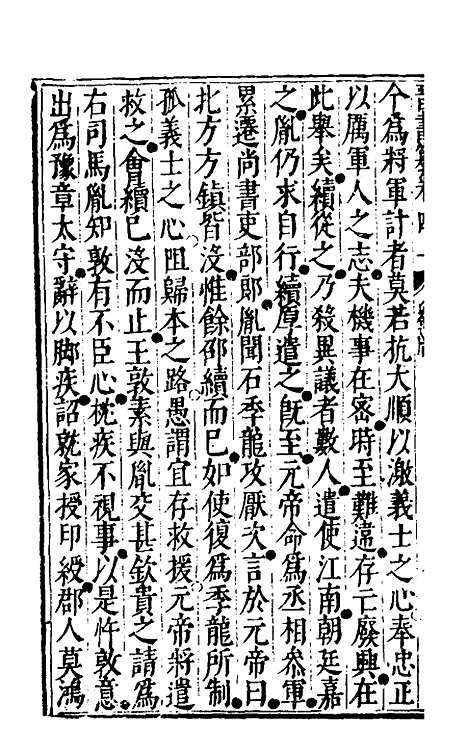 今為將軍計者莫若抗大順以激義士之心奉忠正
以厲軍人之志夫機事在密時至難違存亡廢興在
此舉矣續從之乃殺異議者數人遣使江南朝廷嘉
之胤仍求自行續厚遣之旣至元帝命為丞相叅軍
累遷尚書吏部郎胤聞石季龍攻厭次言於元帝曰
北方方鎮皆没惟餘邵續而已如使復為季龍所制
孤義士之心阻歸本之路愚謂宜存救援元帝將遣
救之會續已没而止王敦素與胤交甚欽貴之請為
右司馬胤知敦有不臣心枕疾不視事以是忤敦意
出為豫章太守辭以脚疾詔就家授印綬郡人莫鴻